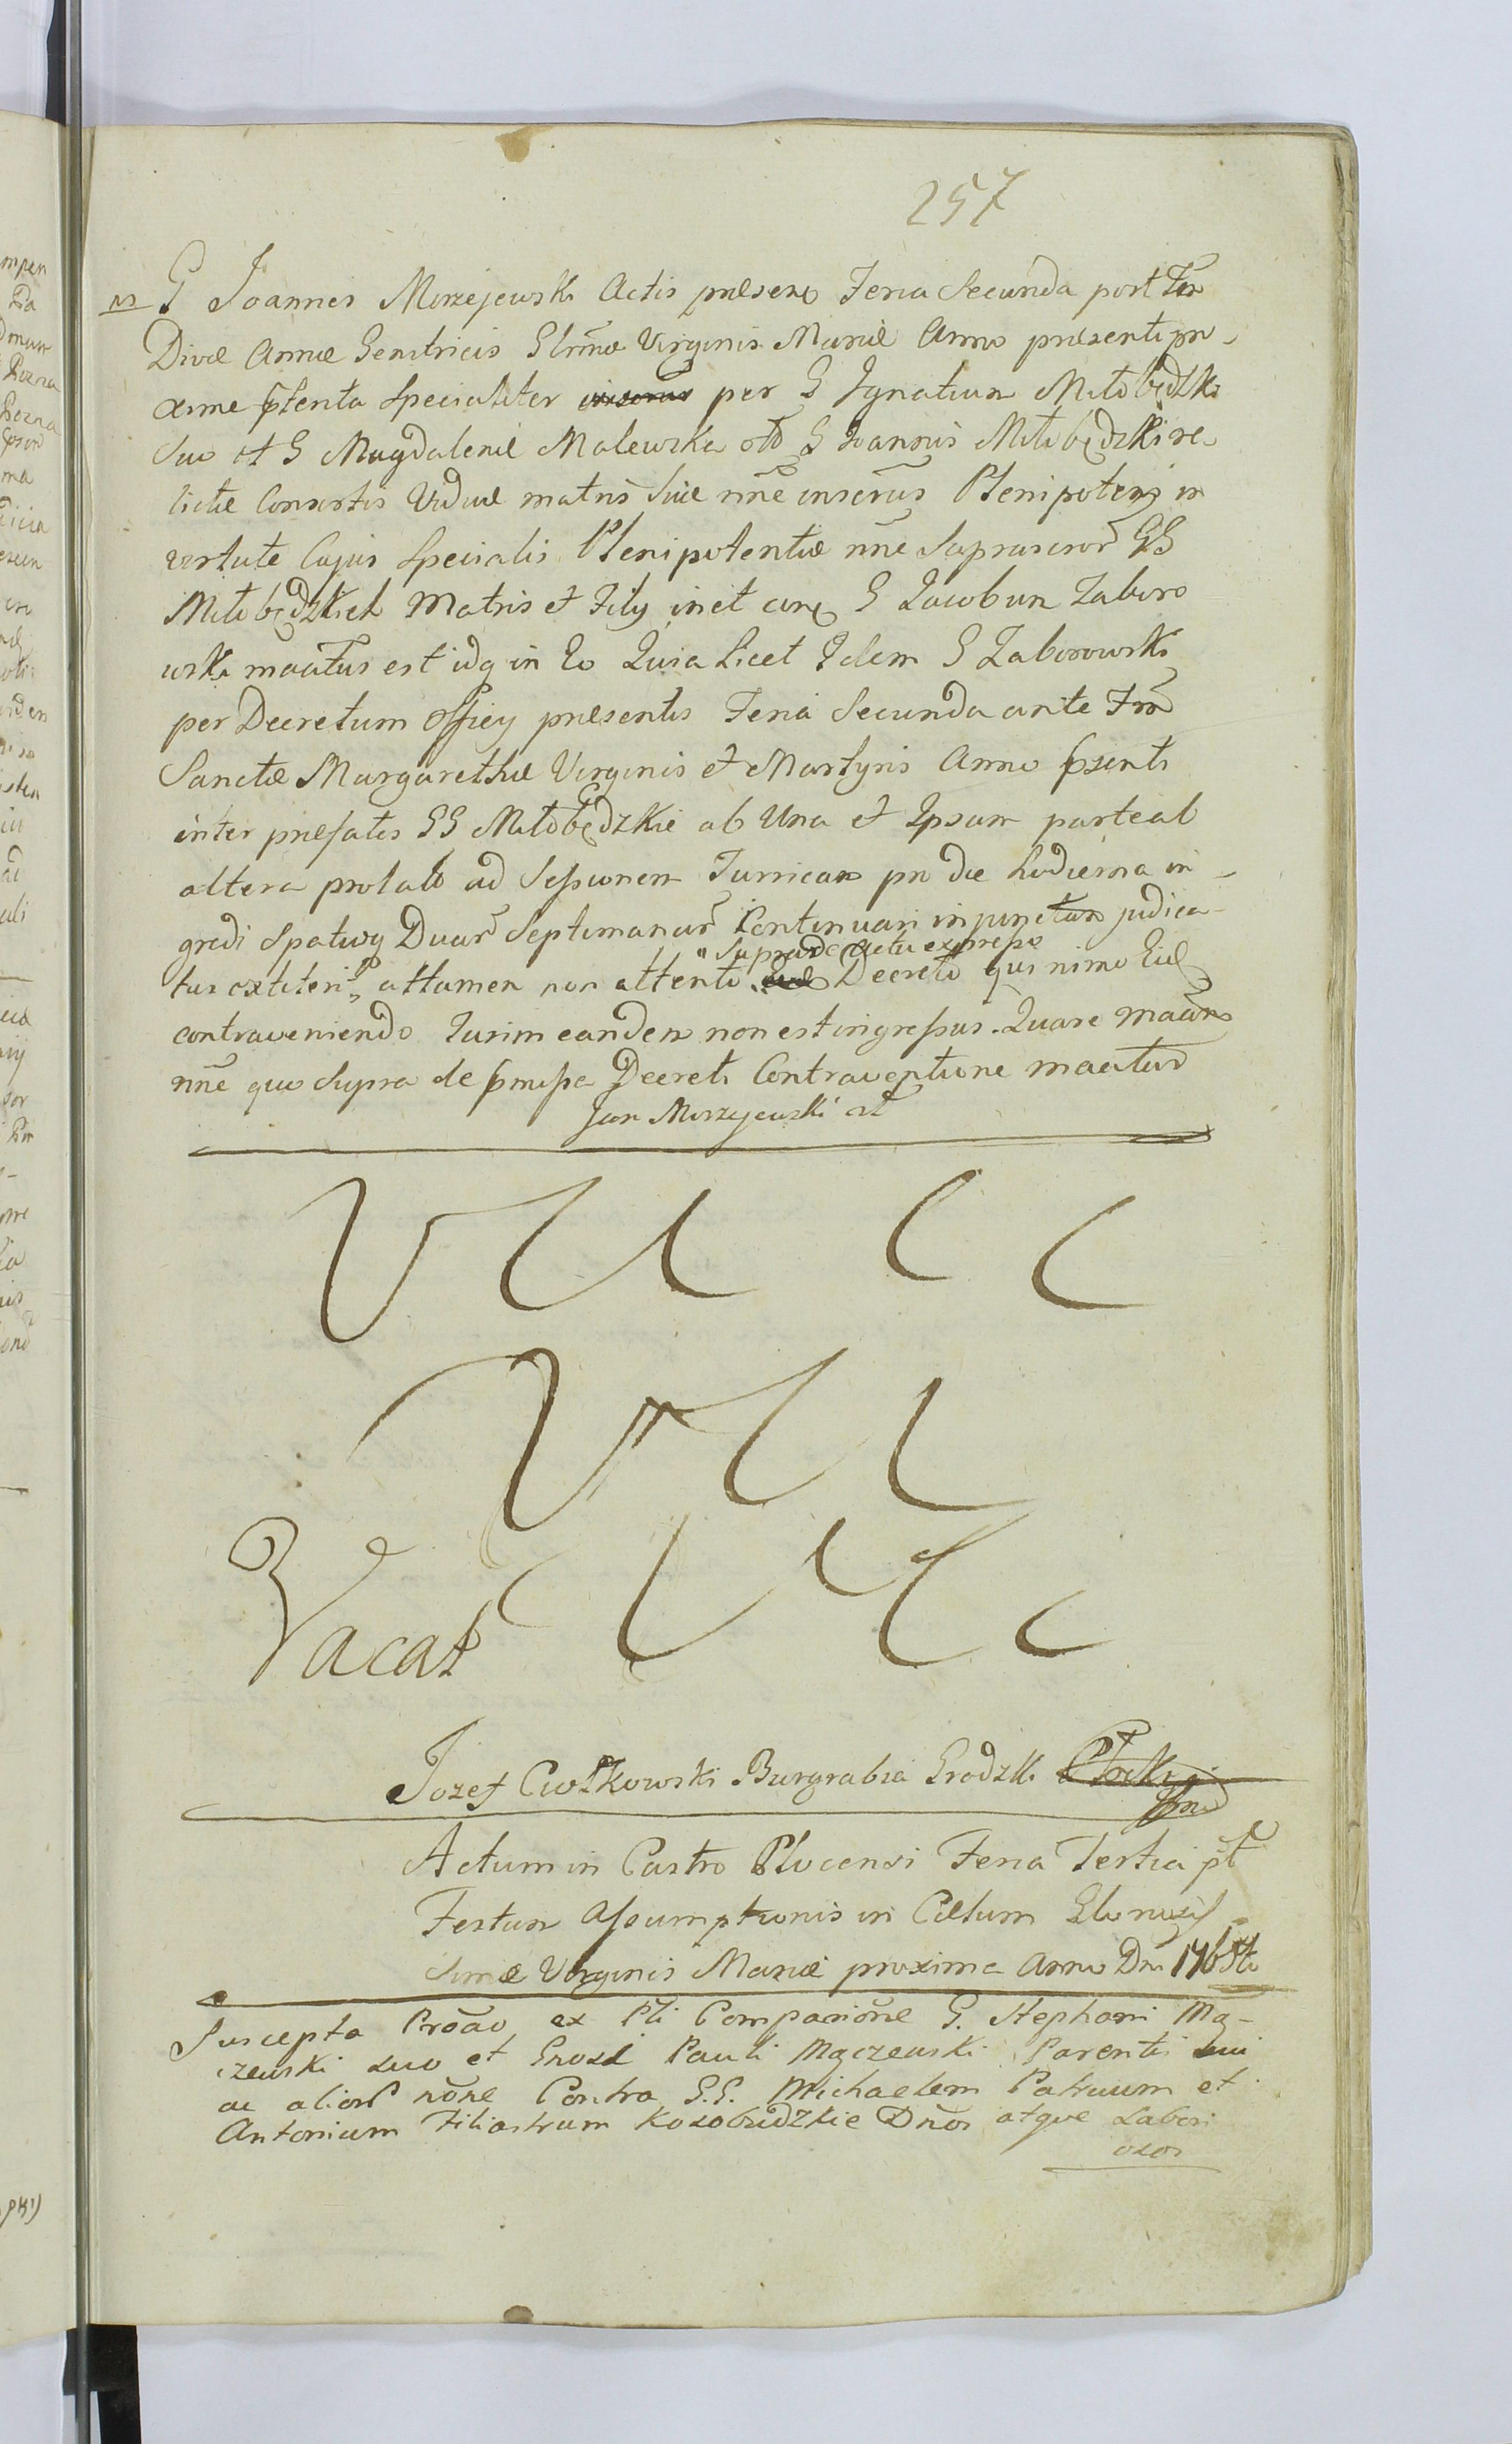 257
G Joannes Morzejewski Actis præsens Feria Secunda post Fm
Divæ Annæ Genitricis Glrmæ Virginis Mariæ Anno præsenti pro
xime ptenta Specialiter per G Ignatium Miłobędzki
Suo et G Magdalenæ Malewska olō G Joannis Miłobędzki re
lictæ Consortis Viduæ matris Suæ nne Plenipotens in
vertute Cujus Specialis Plenipotentiæ nne Suprascror GG
Miłobędzkich Matris et Filij inet cone G Jacobum Zaboro
wski maātus est idq in Eo Quia Licet Idem G Zaborowski
per Decretum Officij præsentis Feria Secunda ante Fm
Sanctæ Margarethæ Virginis et Martyris Anno psenti
inter præfatos GG Miłobędzkie ab Una et Ipsum parte ab
altera prolato ad Sessionem Turricam pro die hodierna in
gredi Spatioq Duar Septimanar Continuari injunctam judica-
tus extiteri, attamen non attento Decreto quinimo Eid
Supra de actu expresso
contraveniendo Turim eandem non est ingressus. Quare maāns
nne quo Supra de pmissa Decreti Contraventione maātur
Jan Morzejewski
Vacat
Jozef Ciołkowski Burgrabia Grodzki Płocki
Actum in Castro Plocensi Feria Tertia pt
Festum Assumptionis in Cælum Glorosis
simæ Virginis Mariæ proxima Anno Dni 1768vo
Suscepta Proāo ex Pli Comparione G. Stephani Mą-
czewski suo et Grosi Pauli Mączewski Parentis sui
ac alior none Contra G.G. Michaelem Patruum et
Antonium Filiastrum Kosobudzkie Dnos atque Labori
osos